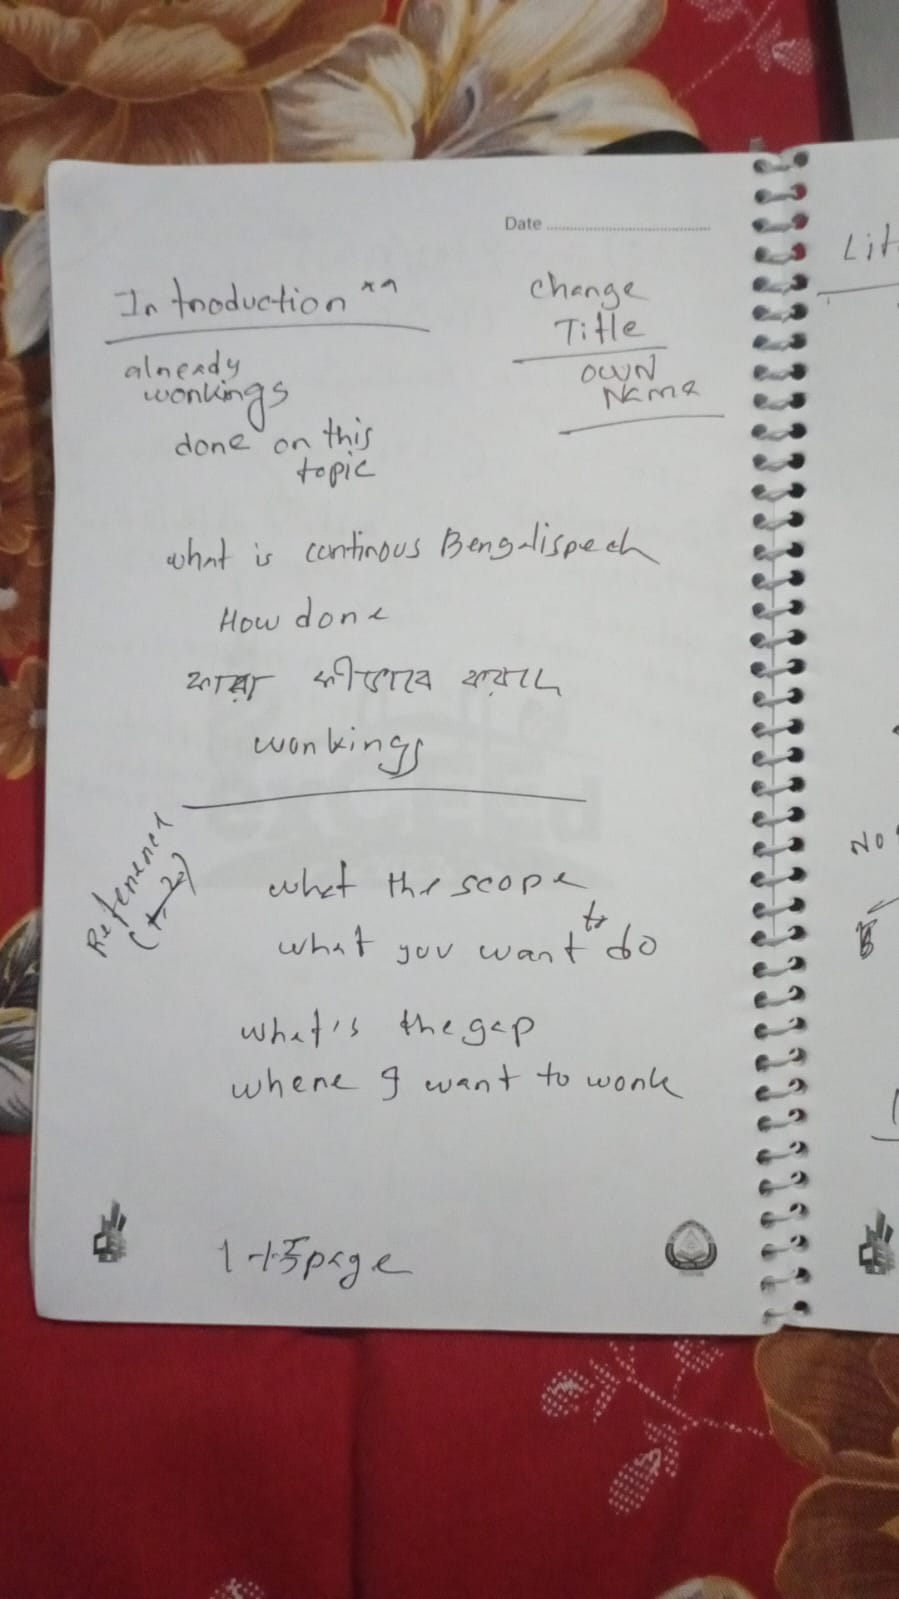 Date
Introduction
Change
Title
own
Name
already
workings
done on this
topic
what is continous Bengalispech
How done
কারা কীভাবে করছে
workings
References
what the scope
what you want to do
what's the gap
where I want to work
1-1.5 page
Lit
No